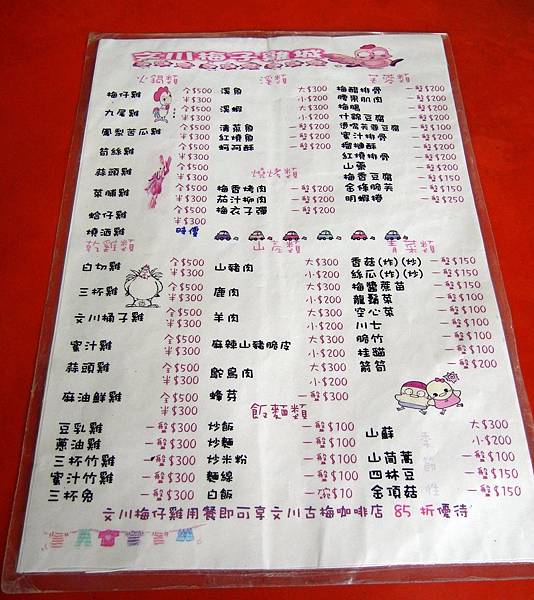 文川梅子雞城
火鍋類
梅仔雞 全$500 半$300
九尾雞 全$500 半$300
鳳梨苦瓜雞 全$500 半$300
筍絲雞 全$500 半$300
蒜頭雞 全$500 半$300
菜脯雞 全$500 半$300
蛤仔雞 全$500 半$300
燒酒雞 時價
乾雞類
白切雞 全$500 半$300
三杯雞 全$500 半$300
文川桶子雞 全$500 半$300
蜜汁雞 全$500 半$300
蒜頭雞 全$500 半$300
麻油鮮雞 全$500 半$300
豆乳雞 一盤$300
蔥油雞 一盤$300
三杯竹雞 一盤$300
蜜汁竹雞 一盤$300
三杯兔 一盤$300
溪類
溪魚 大$300 小$200
溪蝦 大$300 小$200
清蒸魚 一盤$200
紅燒魚 一盤$200
蚵阿酥 一盤$200
燒烤類
梅香烤肉 一盤$200
茄汁柳肉 一盤$200
梅衣子彈 一盤$200
山產類
山豬肉 大$300 小$200
鹿肉 大$300 小$200
羊肉 大$300 小$200
麻辣山豬脆皮 大$300 小$200
鴕鳥肉 大$300 小
蜂芽 一盤$300
飯麵類
炒飯 一盤$100
炒麵 一盤$100
炒米粉 一盤$100
麵線 一盤$100
白飯 一碗$10
梅醋排骨 一盤$200
腰果肌肉 一盤$200
梅腸 一盤$200
什錦豆腐 一盤$200
燙嘴芙蓉豆腐 一盤$200
蜜汁排骨 一盤$200
榴槤酥 一盤$200
紅燒排骨 一盤$200
山棗 一盤$200
梅香豆腐 一盤$150
金條脆芙 一盤$150
明蝦捲 一盤$250
青菜類
香菇(炸)(炒) 一盤$150
絲瓜(炸)(炒) 一盤$150
梅醬蔗苗 一盤$150
龍鬚菜 一盤$100
空心菜 一盤$100
川七 一盤$100
脆竹 一盤$100
桂貓 一盤$100
箭筍 一盤$200
季節性
山蘇 大$300 小$200
山茼蒿 一盤$100
四林豆 一盤$150
金頂菇 一盤$150
文川梅仔雞用餐即可享文川古梅咖啡店 85 折優待